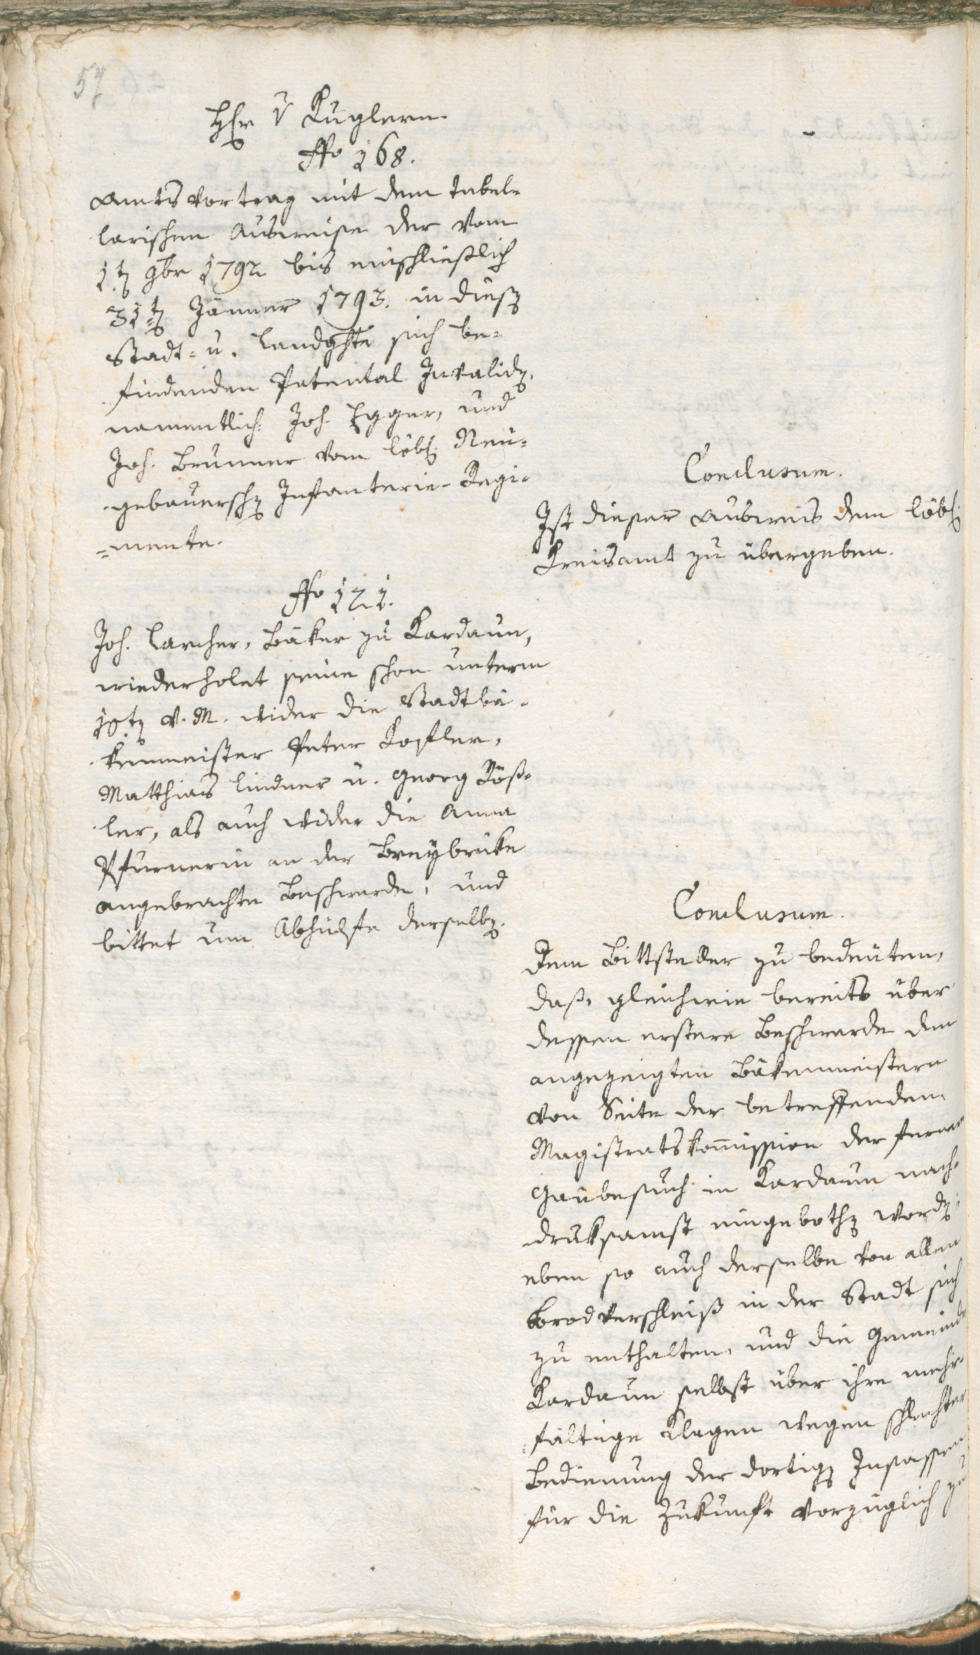 54
Hr v Kuglern.
No 168.
Amtsvortrag mit dem tabel-
larischen Ausweise der vom
1t 9br 1792 bis einschließlich
31t Jänner 1793. in dieß
Stadt- u. Landghte sich be-
findenden Patental Invalid.
namentlich: Joh. Egger, und
Joh. Brunner vom löbl. Neu-
gebauersch Infanterie-Regi-
mente.
Conclusum.
Ist dieser Ausweis dem löbl.
Kreisamt zu übergeben.
No 171.
Joh. Larcher, Bäker zu Kardaun,
wiederholet seine schon unterm
v. M. wider die Stadtbä-
kenmeister Peter Kofler,
Matthias Lindner u. Georg Röß-
ler, als auch wider die Anna
Pfurnerin an der Breybruke
angebrachte Beschwerde, und
bittet um Abhülfe derselb.
Conclusum.
Dem Bittsteller zu bedeuten,
daß, gleichwie bereits über
dessen erstere Beschwerde den
angezeigten Bäkenmeistern
von Seite der betreffenden
Magistratskommission der fernere
Gäubesuch in Kardaun nach-
druksamst eingeboth word,
eben so auch derselbe von allem
Brodverschleiß in der Stadt sich
zu enthalten, und die Gemeinde
Kardaun selbst über ihre mehr-
fältige Klagen wegen schlechter
Bedienung der dortig Insassen
für die Zukunft vorzüglich zu